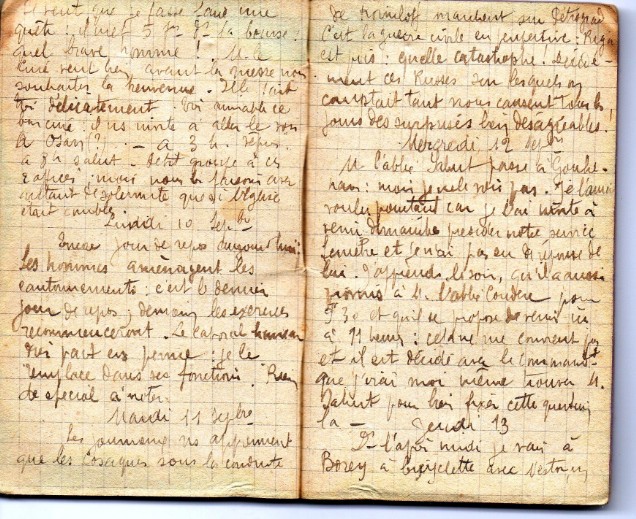 veut que je fasse faire une
quête : il met 5 frs ds la bourse.
quel brave homme ! M. le
Curé veut bien, avant la messe nous
souhaiter la bienvenue. Il le fait
très délicatement. Très aimable ce
bon curé, il ns invite à aller le voir
à 3 h. Vêpres.
à 8h salut. Petit groupe à ces
offices : mais nous le faisons avec
autant de solennité que si l'église
était comble.
Lundi 10 Septbre
Encore jour de repos aujourd'hui
Les hommes aménagent les
cantonnements : c'est le dernier
jour de repos ; demain les exercices
recommenceront. Le caporal
part en perme : je le
remplace dans ses fonctions. Rien
de spécial à noter.
Mardi 11 Septbre
Les journaux ns apprennent
que les Cosaques sous la conduite
de Korniloff marchent sur Pétrograd
C'est la guerre civile en perspective : Riga
est pris : quelle catastrophe ! Décidé-
ment ces Russes sur lesquels on
comptait tant nous causent tous les
jours des surprises bien désagréables !
Mercredi 12 Septbre
M. l'abbé passe à
: mais je ne le vois pas. Je l'aurais
voulu pourtant car je l'ai invité à
venir dimanche présider notre service
funèbre et je n'ai pas eu de réponse de
lui. J'apprends le soir, qu'il a aussi
promis à M. l'abbé pour
9h30 et qu'il se propose de venir ici
à 11 heures : cela ne me convient pas
et il est décidé avec le Commandt
que j'irai moi même trouver M.
pour bien fixer cette question
là — Jeudi 13
Ds l'après midi je vais à
Borey à bicyclette avec